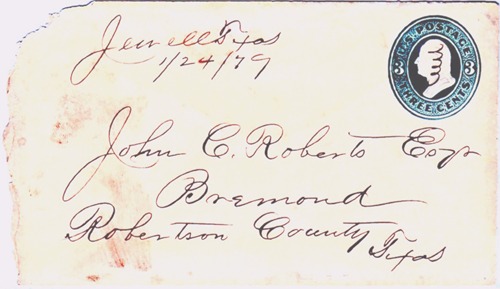 Jewell Texas
1/24/79
U.S. POSTAGE
3 3
THREE CENTS
John C. Roberts Esqr
Bremond
Robertson County Texas